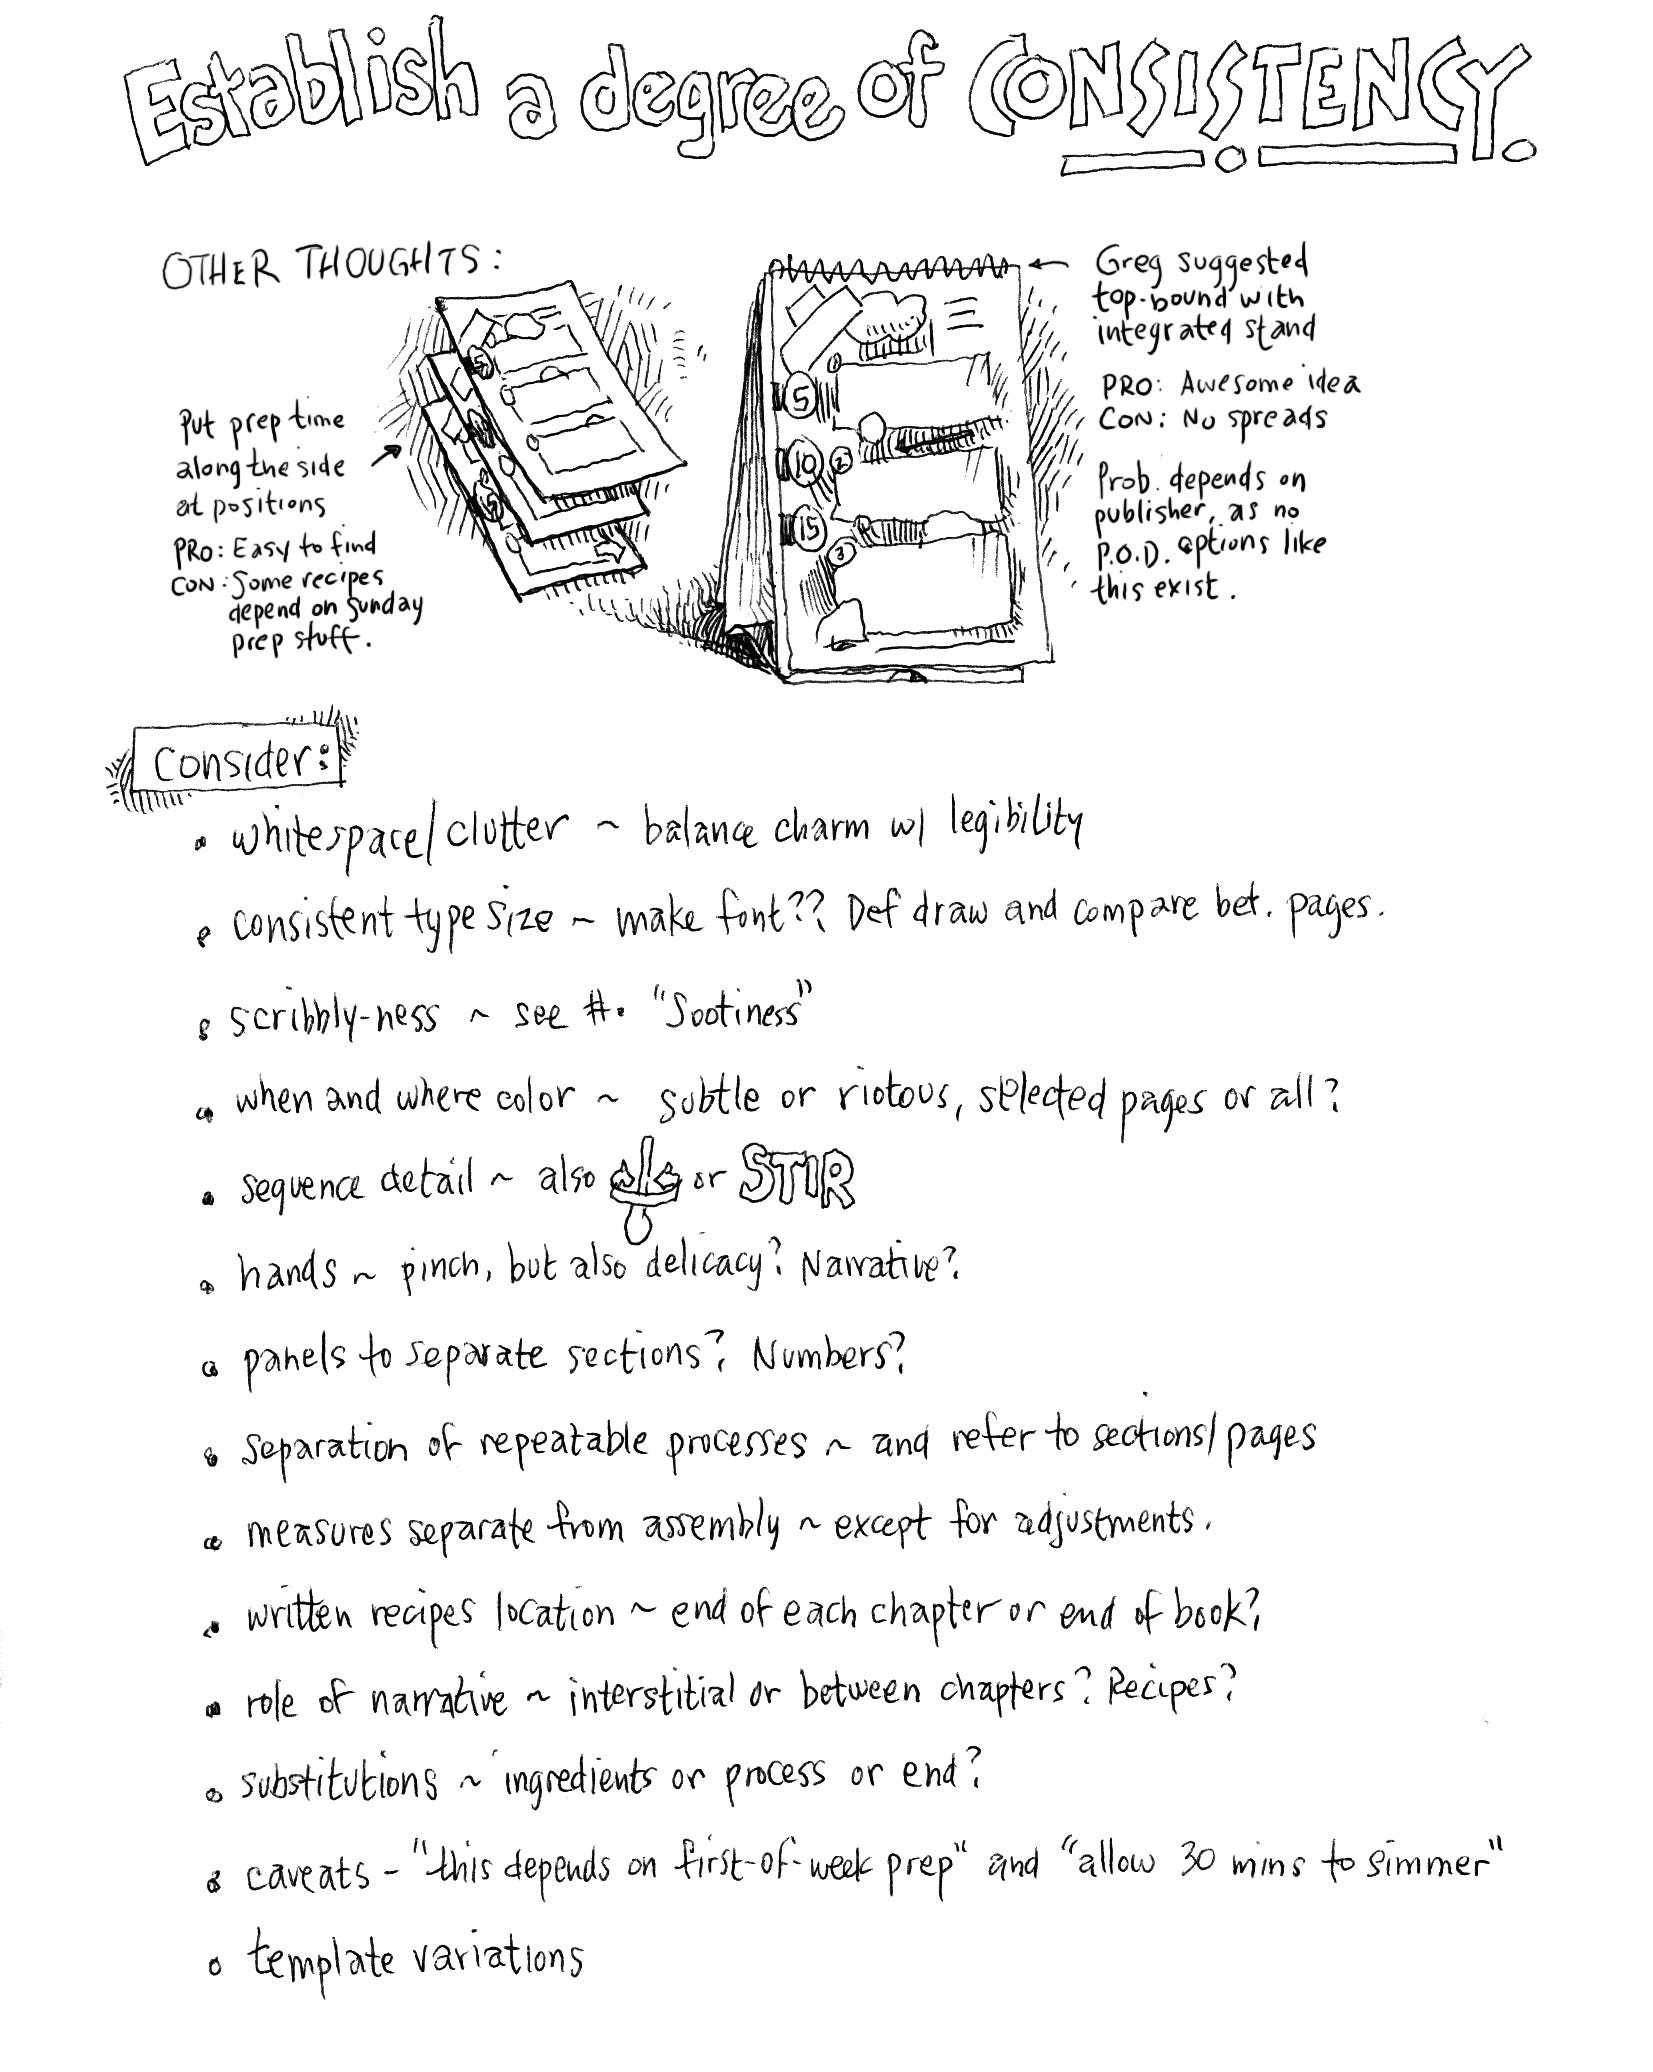 Establish a degree of CONSISTENCY.
OTHER THOUGHTS:
Put prep time
along the side
at positions
PRO: Easy to find
CON: Some recipes
depend on Sunday
prep stuff.
5
5
10
2
15
3
Greg suggested
top-bound with
integrated stand
PRO: Awesome idea
CON: No spreads
Prob. depends on
publisher, as no
P.O.D. options like
this exist.
Consider:
• whitespace/clutter ~ balance charm w/ legibility
• consistent type size ~ make font?? Def draw and compare bet. pages.
• scribbly-ness ~ see #. "Sootiness"
• when and where color ~ subtle or riotous, selected pages or all?
• sequence detail ~ also or STIR
• hands ~ pinch, but also delicacy? Narrative?
• panels to separate sections? Numbers?
• separation of repeatable processes ~ and refer to sections/pages
• measures separate from assembly ~ except for adjustments.
• written recipes location ~ end of each chapter or end of book?
• role of narrative ~ interstitial or between chapters? Recipes?
• substitutions ~ ingredients or process or end?
• caveats - "this depends on first-of-week prep" and "allow 30 mins to simmer"
• template variations